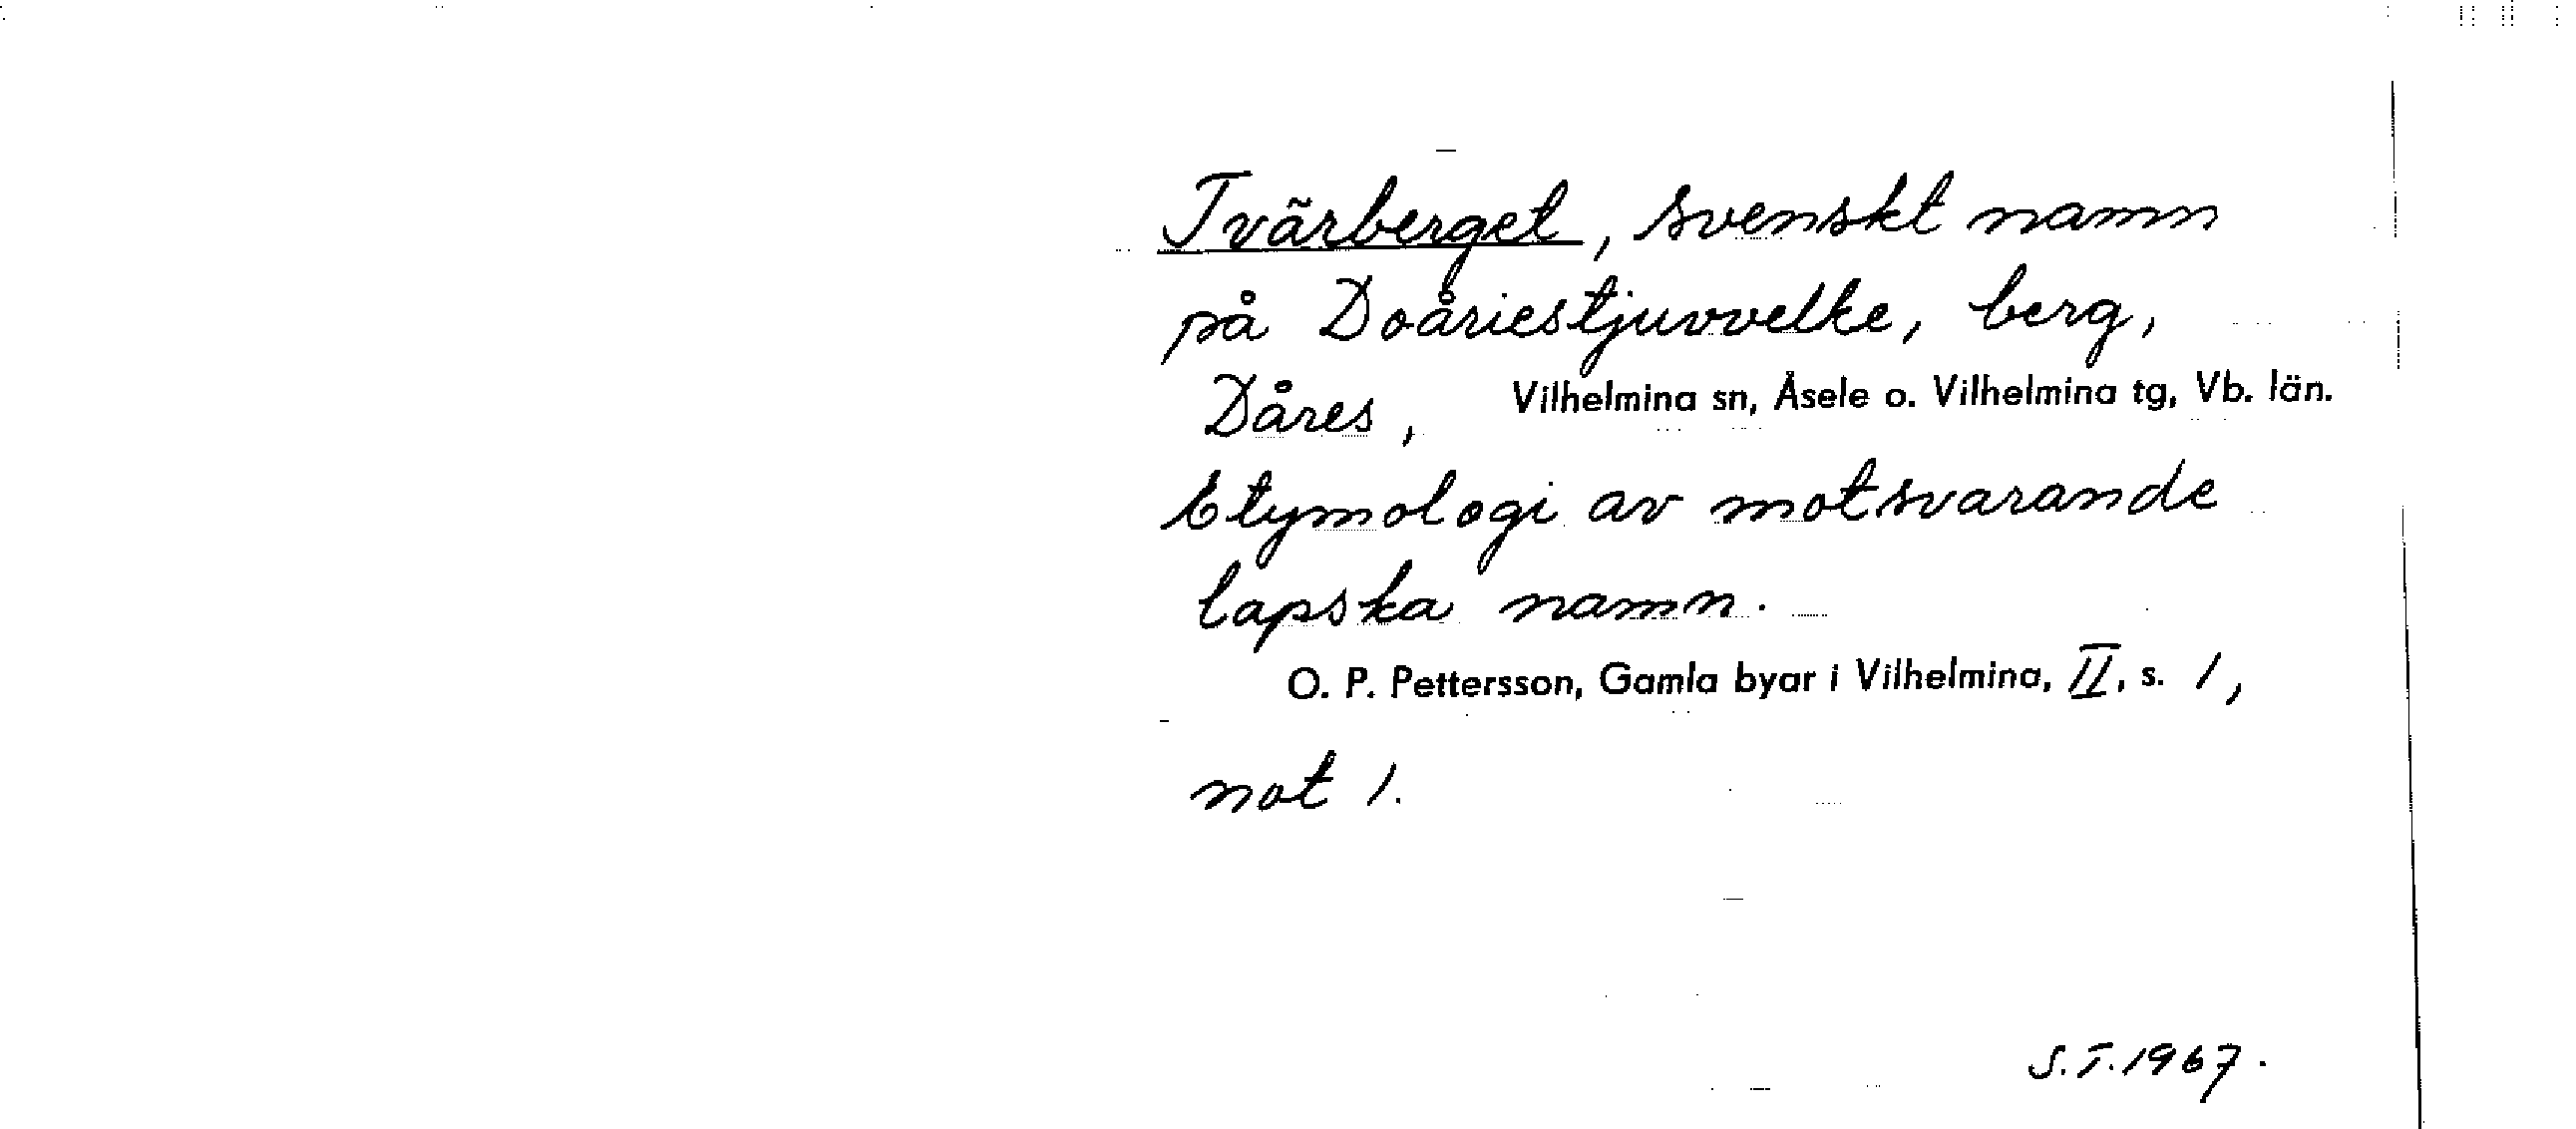 Tvärberget, svenskt namn
på Doåriestjuvvelke, berg,
Dåres, Vilhelmina sn, Åsele o. Vilhelmina tg, Vb. län.
Etymologi av motsvarande
lapska namn.
O. P. Pettersson, Gamla byar i Vilhelmina, II, s. 1,
not 1.
S.T.1967.